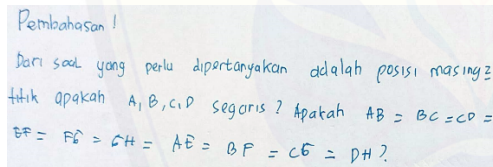 Pembahasan !
Dari soal yang perlu dipertanyakan adalah posisi masing2
titik apakah A, B, C, D segaris ? Apakah AB = BC = CD =
EF = FG = GH = AE = BF = CG = DH ?